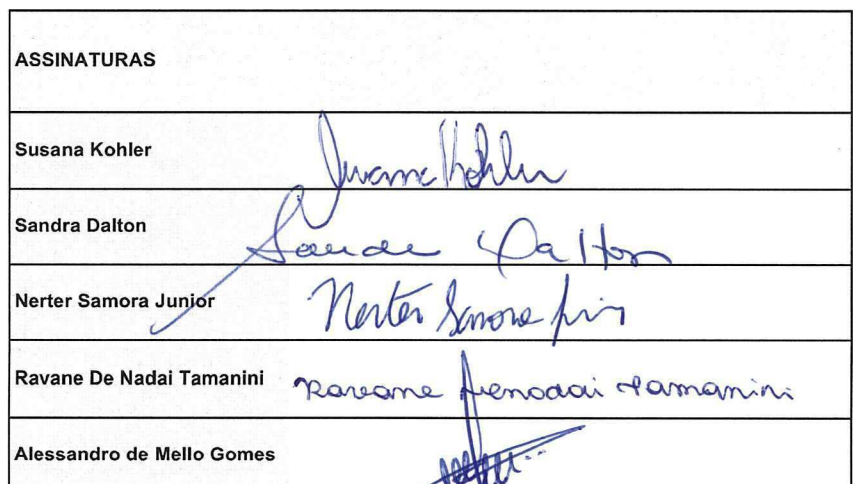 ASSINATURAS
Susana Kohler
Susana Kohler
Sandra Dalton
Sandra Dalton
Nerter Samora Junior
Nerter Samora
Ravane De Nadai Tamanini
Ravane Denadai Tamanini
Alessandro de Mello Gomes